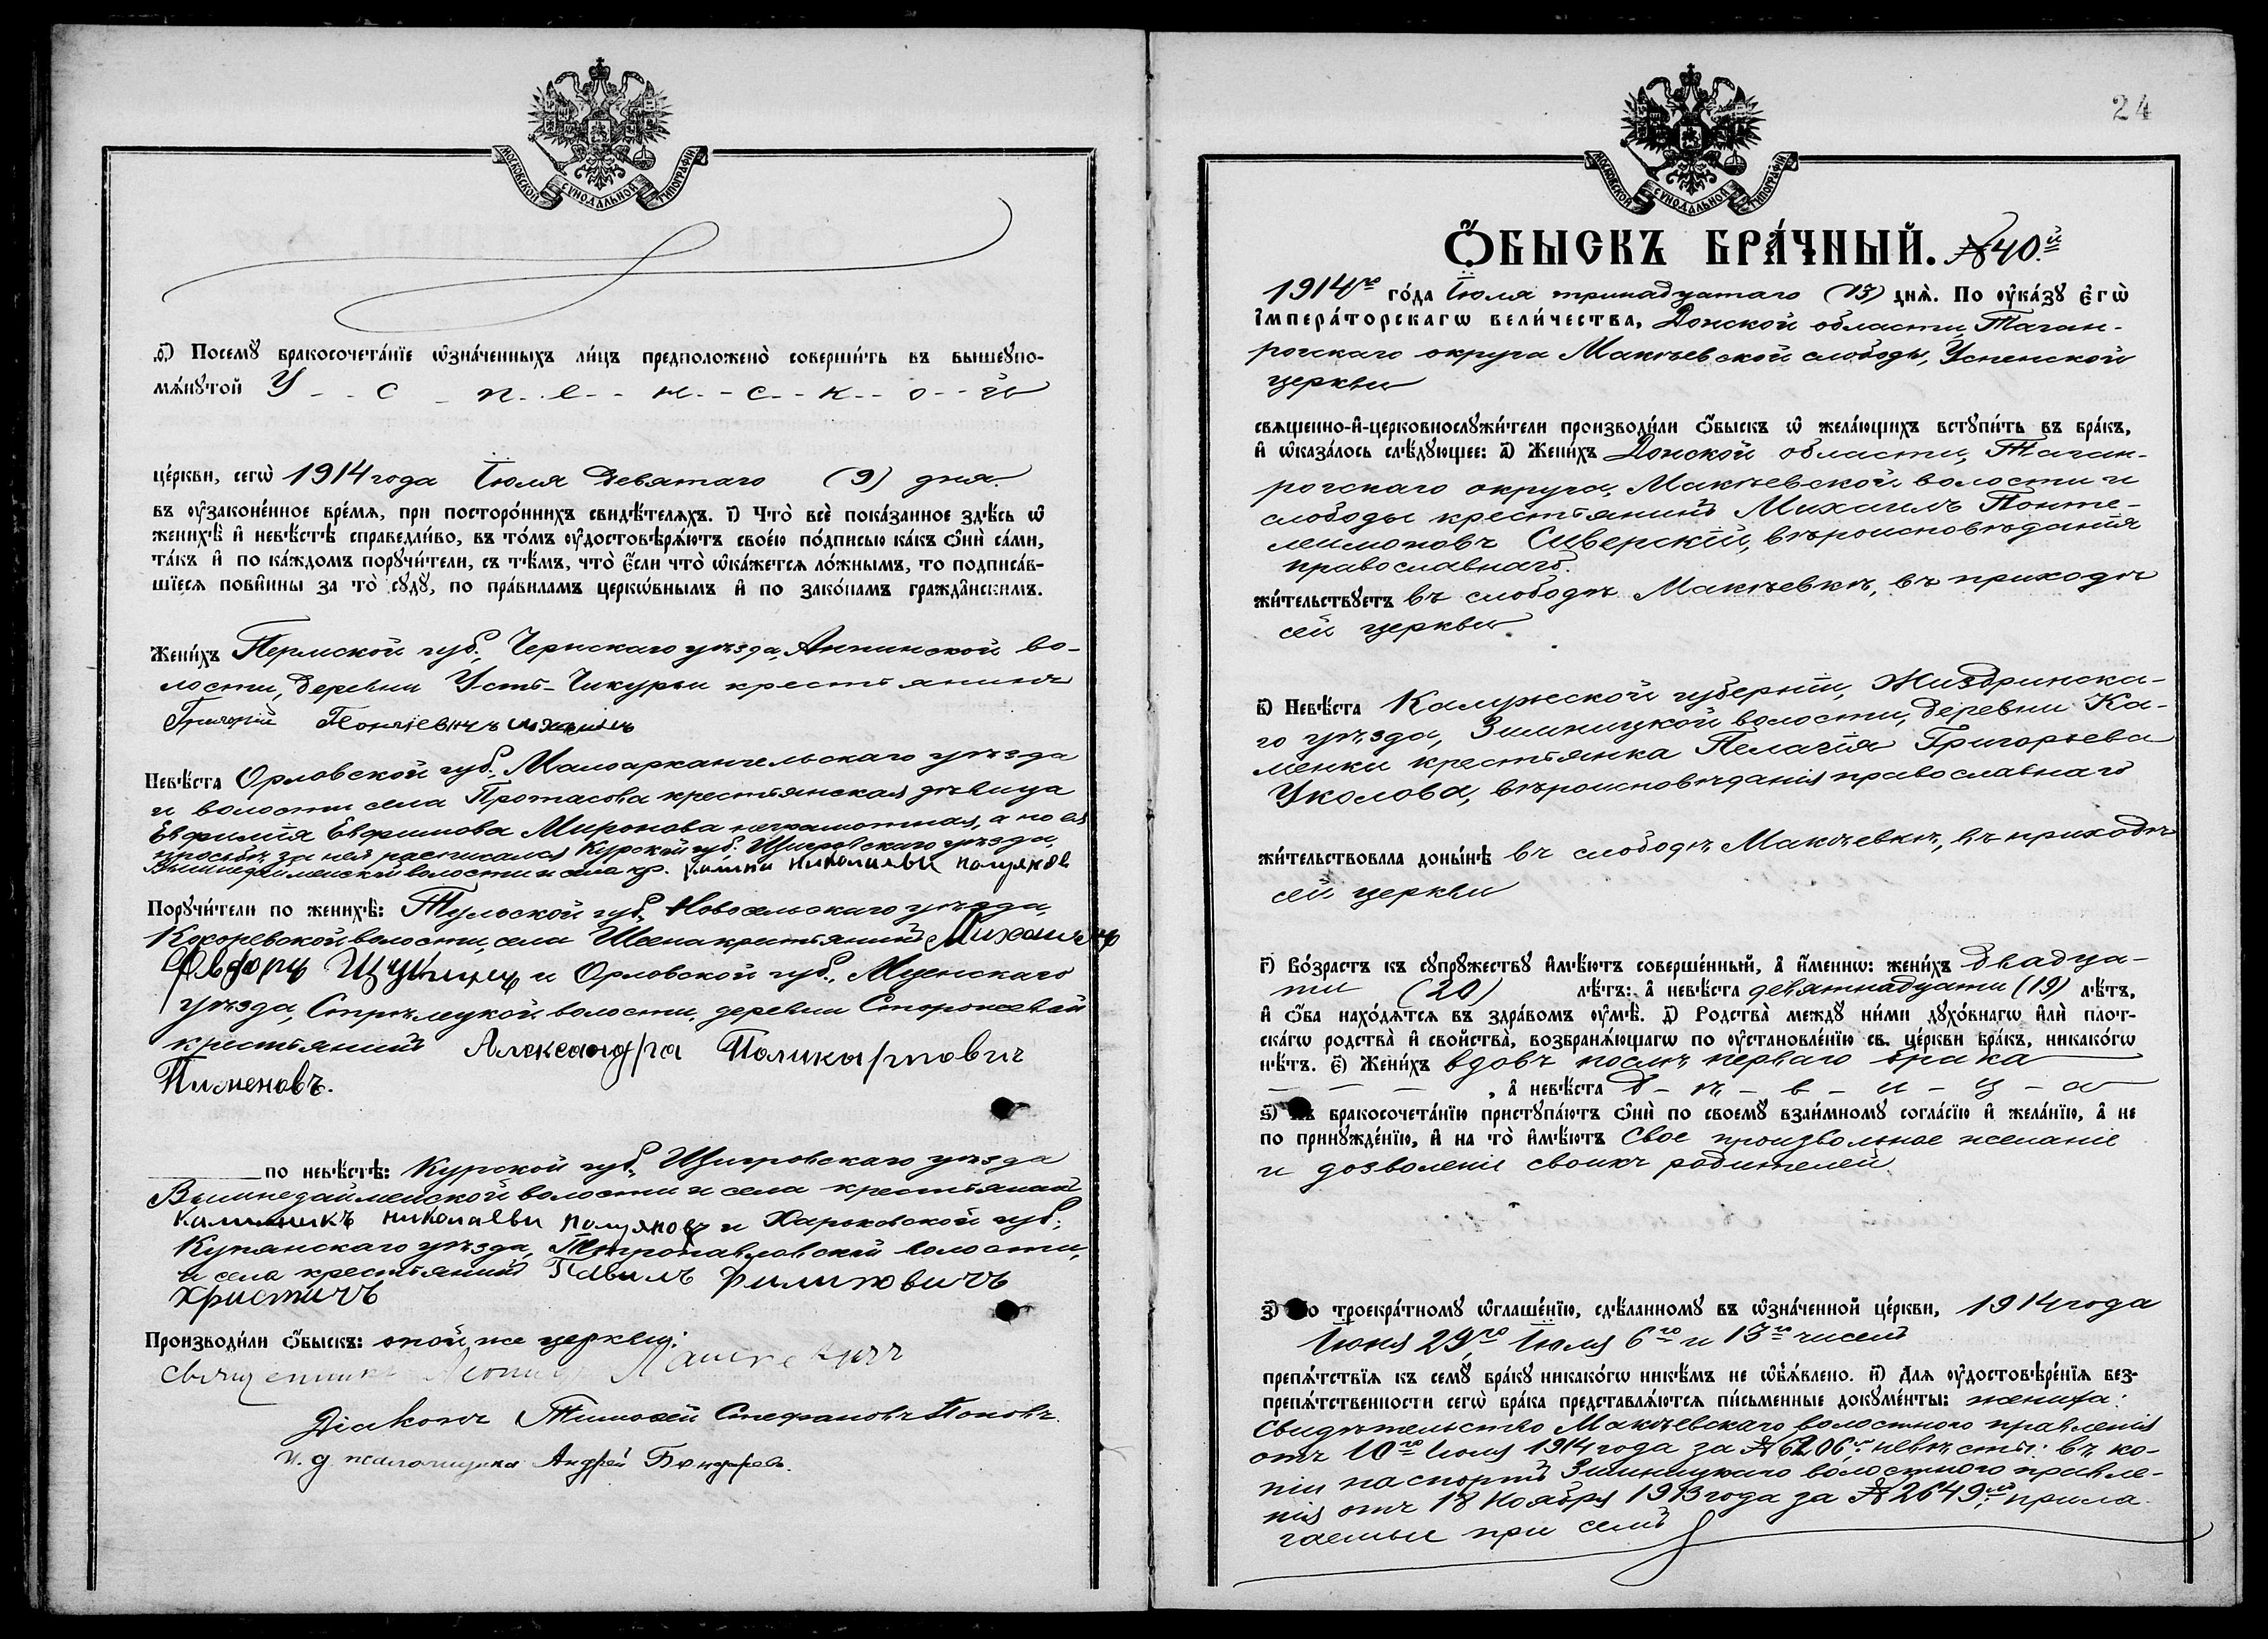 МОСКОВСКОЙ СѴНОДАЛЬНОЙ ТИПОГРАФІИ
Ѳ҃) Посемꙋ̀ бракосочета́нїе ѡ҆зна́ченныхъ ли́цъ предположено̀ соверши́ть въ вышеꙋпо-
мѧ́нꙋтой У - - с - п - - е - - н - - с - - к - - о - - й
це́ркви, сегѡ̀ 1914 года Іюля девятаго (9) дня
въ ᲂу҆законе́нное вре́мѧ, при посторо́ннихъ свидѣ́телѧхъ. І҃) Что̀ всѐ пока́занное здѣ́сь ѡ҆
женихѣ̀ и҆ невѣ́стѣ справедли́во, въ то́мъ ᲂу҆достовѣрѧ́ютъ свое́ю по́дписью ка́къ ѻ҆нѝ са́ми,
та́къ и҆ по ка́ждомъ порꙋчи́тели, съ тѣ́мъ, что̀ є҆́сли что̀ ѡ҆ка́жетсѧ ло́жнымъ, то подписа́в-
шїесѧ пови́нны за то̀ сꙋдꙋ̀, по пра́виламъ церкѡ́внымъ и҆ по зако́намъ гражда̂нскимъ.
Жени́хъ Пермской губ., Чернскаго уѣзда, Аннинской во-
лости, деревни Усть-Чикурьи крестьянинъ
Григорій
Невѣ́ста Орловской губ., Малоархангельскаго уѣзда
и волости села Протасова крестьянская дѣвица
Евфимія Евфимова Миронова неграмотная, а по ея
просьбѣ за нея расписался Курской губ. Щигровскаго уѣзда,
Вышнедайменской волости и села кр. Николаеви Полуяков
Порꙋчи́тели по женихѣ̀: Тульской губ., Новосельскаго уѣзда,
Кохоревской волости, села Шеена крестьянинъ Михаилъ
и Орловской губ., Мценскаго
уѣзда, Стрѣлецкой волости, деревни Сторожевой
крестьянинъ Александра Поликарпович
Пименовъ.
по невѣ́стѣ: Курской губ., Щигровскаго уѣзда
Вышнедайменской волости и села крестьянинъ
Калинникъ Николаеви Полуяковъ и Харьковской губ.,
Купянскаго уѣзда, Петропавловской волости,
и села крестьянинъ Павилъ Филиповичъ
Христичъ
Производи́ли ѻ҆́быскъ: оной же церкви:
Священникъ Леонидъ
Діаконъ Тимофей Стефановъ Поповъ.
и. д. псаломщика Андрей Бондарев.
24
МОСКОВСКОЙ СѴНОДАЛЬНОЙ ТИПОГРАФІИ
Ѻ҆́БЫСКЪ БРА́ЧНЫЙ. №40.й
1914го го́да Іюля тринадцатаго (13) днѧ̀. По ᲂу҆ка́зꙋ є҆гѡ̀
і҆мпера́торскагѡ вели́чества, Донской области, Таган-
рогскаго округа Макѣевской слободы, Успенской
церкви
свѧщенно-и҆-церковнослꙋжи́тели производи́ли ѻ҆́быскъ ѡ҆ жела́ющихъ встꙋпи́ть въ бра́къ,
и҆ ѡ҆каза́лось слѣ́дꙋющее: А҃) Жени́хъ Донской области, Таган-
рогскаго округа, Макѣевской волости и
слободы крестьянинъ Михаилъ Понте-
леимоновъ Сиверскій, вѣроисповѣданія
православнаго.
жи́тельствꙋетъ въ слободѣ Макѣевкѣ, въ приходѣ
сей церкви.
В҃) Невѣ́ста Калужской губерніи, Жиздринска-
го уѣзда, Зимницкой волости, деревни Ка-
менки крестьянка Пелагія Григорьева
Уколова, вѣроисповѣданія православнаго
жи́тельствовала доны́нѣ въ слободѣ Макѣевкѣ, въ приходѣ
сей церкви
Г҃) Во́зрастъ къ сꙋпрꙋ́жествꙋ и҆мѣ́ютъ соверше́нный, а҆ и҆́меннѡ: жени́хъ двадца-
ти (20) лѣ́тъ: а҆ невѣ́ста девятнадцати (19) лѣ́тъ,
и҆ ѻ҆́ба нахо́дѧтсѧ въ здра́вомъ ᲂу҆мѣ̀. Д҃) Родства̀ междꙋ̀ ни́ми дꙋхо́внагѡ и҆лѝ плот-
ска́гѡ родства̀ и҆ свойства̀, возбранѧ́ющагѡ по ᲂу҆становле́нїю св. це́ркви бра́къ, никако́гѡ
нѣ́тъ. Є҃) Жени́хъ вдовъ послѣ перваго брака
, а҆ невѣ́ста д - ѣ - в - и - ц - а
Ѕ҃) бракосочета́нїю пристꙋпа́ютъ ѻ҆нѝ по своемꙋ̀ взаи́мномꙋ согла́сїю и҆ жела́нїю, а҆ не
по принꙋжде́нїю, и҆ на то̀ и҆мѣ́ютъ Свое произвольное желаніе
и дозволеніе своихъ родителей
З҃) По троекра́тномꙋ ѡ҆глаше́нїю, сдѣ́ланномꙋ въ ѡ҆зна́ченной це́ркви, 1914 года
Іюня 29го, Іюля 6го и 13го чиселъ
препѧ́тствїѧ къ семꙋ̀ бра́кꙋ никако́гѡ никѣ́мъ не ѡ҆б̾ѧ́влено. И҃) Длѧ ᲂу҆достовѣре́нїѧ без-
препѧ́тственности сегѡ̀ бра́ка представлѧ́ютсѧ пи́сьменные докꙋме́нты: жениха:
Свидѣтельство Макѣевскаго волостного правленія
отъ 10го Іюля 1914 года за №6206, невѣсты: въ ко-
піи паспортъ Зимницкаго волостного правле-
нія отъ 18 Ноября 1913 года за №2649, прила-
гаемые при семъ